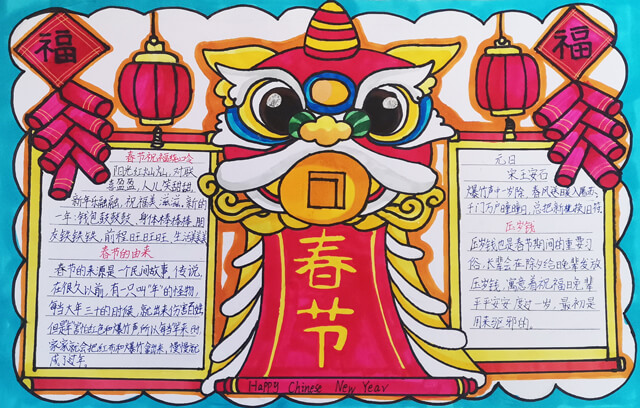 福
福
春节祝福绕口令
阳光红灿灿,对联
喜盈盈,人儿笑甜甜,
新年乐融融,祝福美滋滋,新的
一年:钱包鼓鼓鼓,身体棒棒棒,朋
友铁铁铁,前程旺旺旺,生活美美美
春节的由来
春节的来源是一个民间故事,传说,
在很久以前,有一只叫"年"的怪物,
每当大年三十的时候,就出来伤害百姓,
但是年害怕红色和爆竹声所以每当年来时
家家就会把红布和爆竹拿出来,慢慢就
成了过年。
春节
Happy Chinese New Year
元日
宋王安石
爆竹声中一岁除,春风送暖入屠苏,
千门万户曈曈日,总把新桃换旧符
压岁钱
压岁钱也是春节期间的重要习
俗,长辈会在除夕给晚辈发放
压岁钱,寓意着祝福晚辈
平平安安度过一岁,最初是
用来驱邪的。